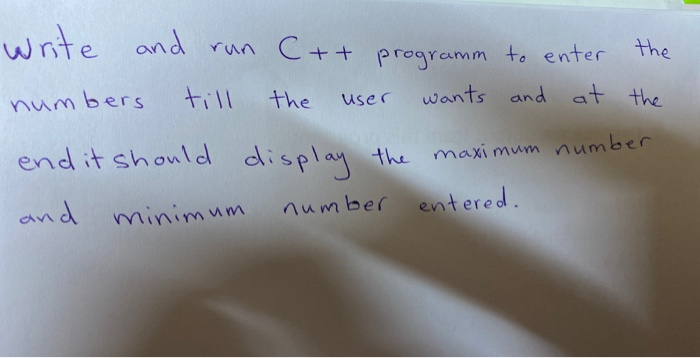 Write and run C++ programm to enter the
numbers till the user wants and at the
end it should display the maximum number
and minimum number entered.